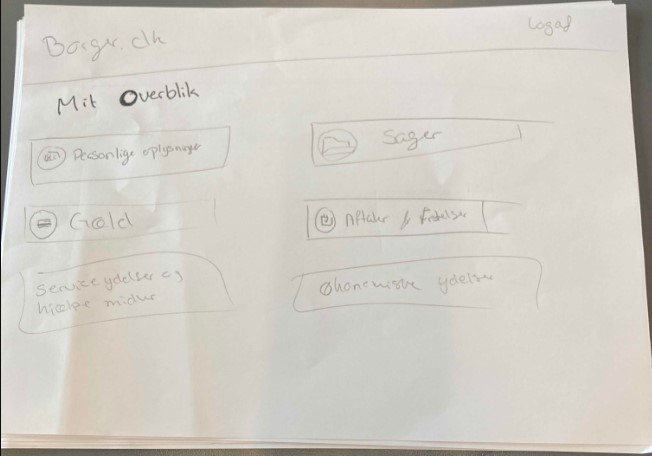 Borger.dk
Log af
Mit Overblik
Personlige oplysninger
Sager
Gæld
Aftaler & fristelser
Serviceydelser og
hjælpe midler
Økonomiske ydelser